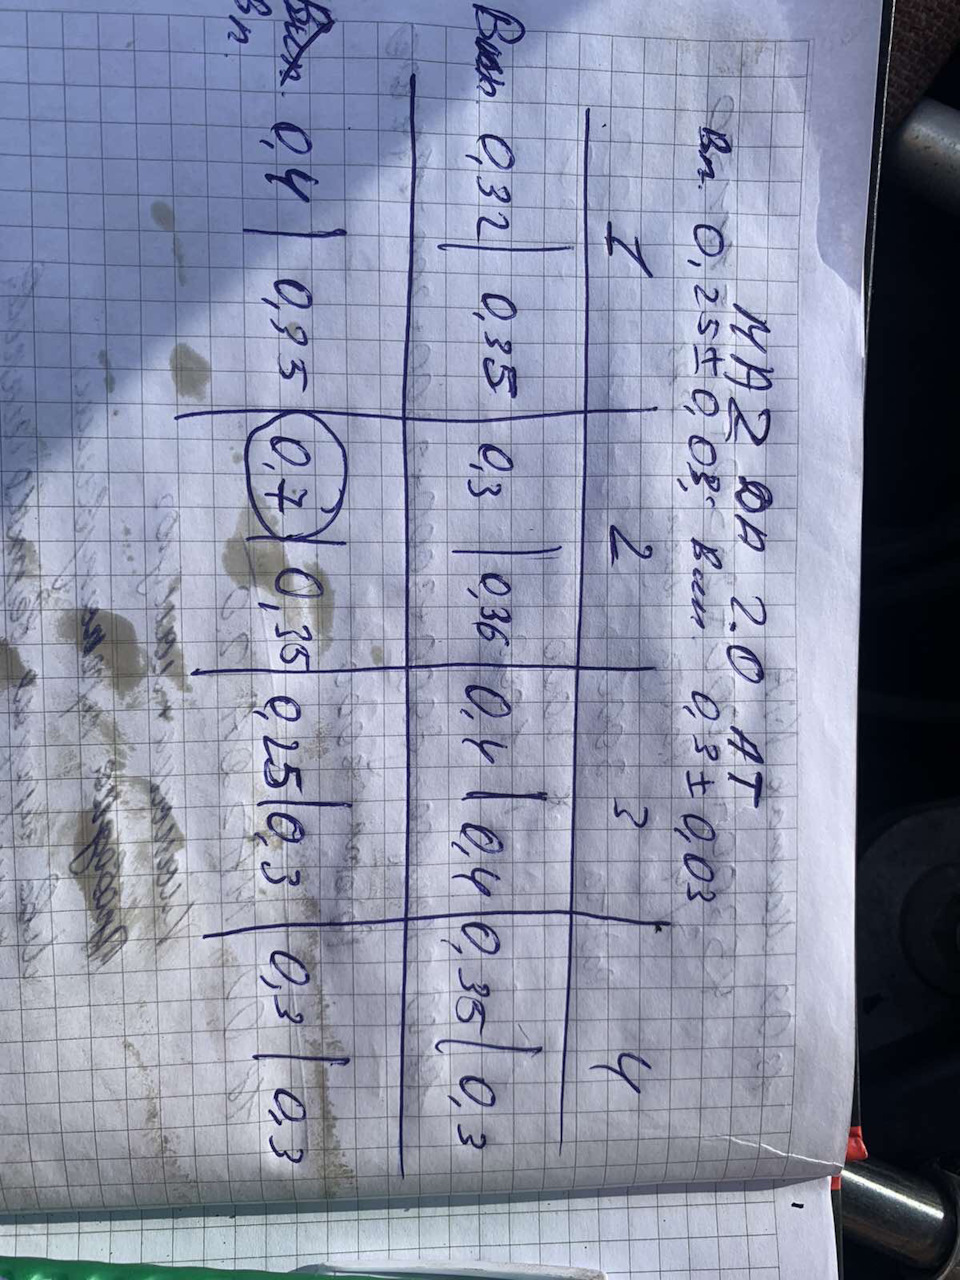 МАЗДА 2.0 АТ
Вп. 0,25±0,03; Вып. 0,3±0,03
1 2 3 4
Вып. 0,32 | 0,35 0,3 | 0,36 0,4 | 0,4 0,35 | 0,3
Вп 0,4 | 0,35 0,7 | 0,35 0,25 | 0,3 0,3 | 0,3